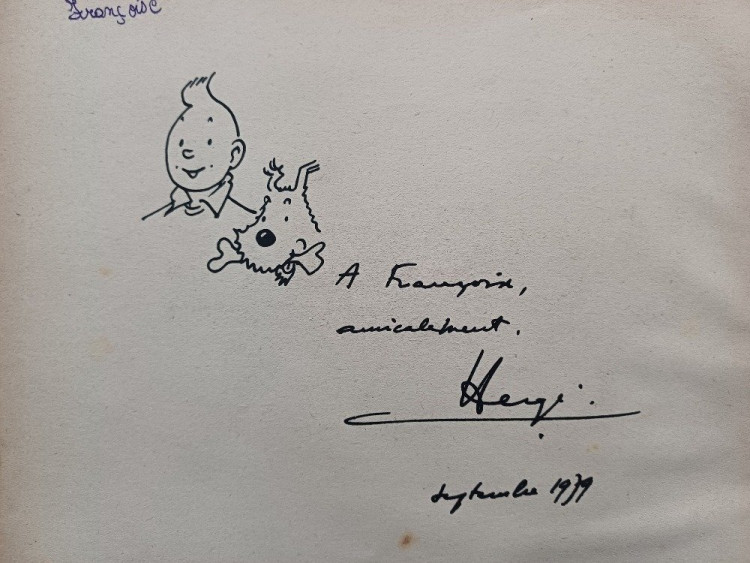 Françoise
A Françoise,
amicalement.
Hergé.
septembre 1979